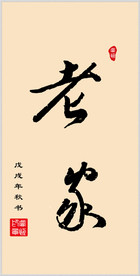 老家
戊戌年秋书